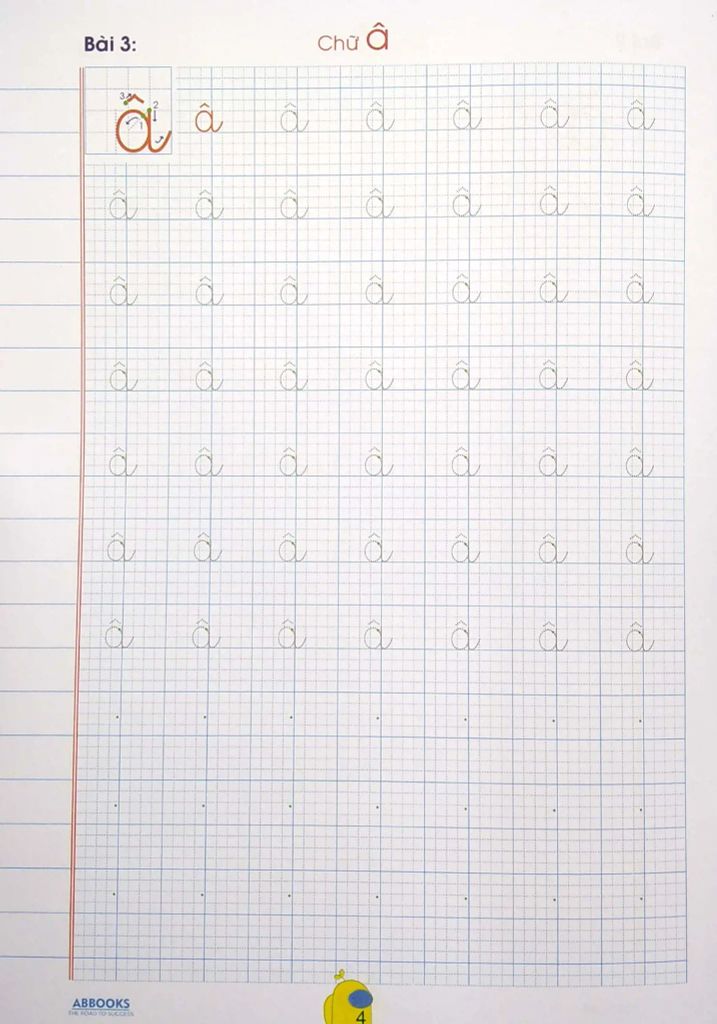 Bài 3: Chữ â
3 2 1 â â â â â â â
â â â â â â â
â â â â â â â
â â â â â â â
â â â â â â â
â â â â â â â
â â â â â â â
ABBOOKS
THE ROAD TO SUCCESS
4